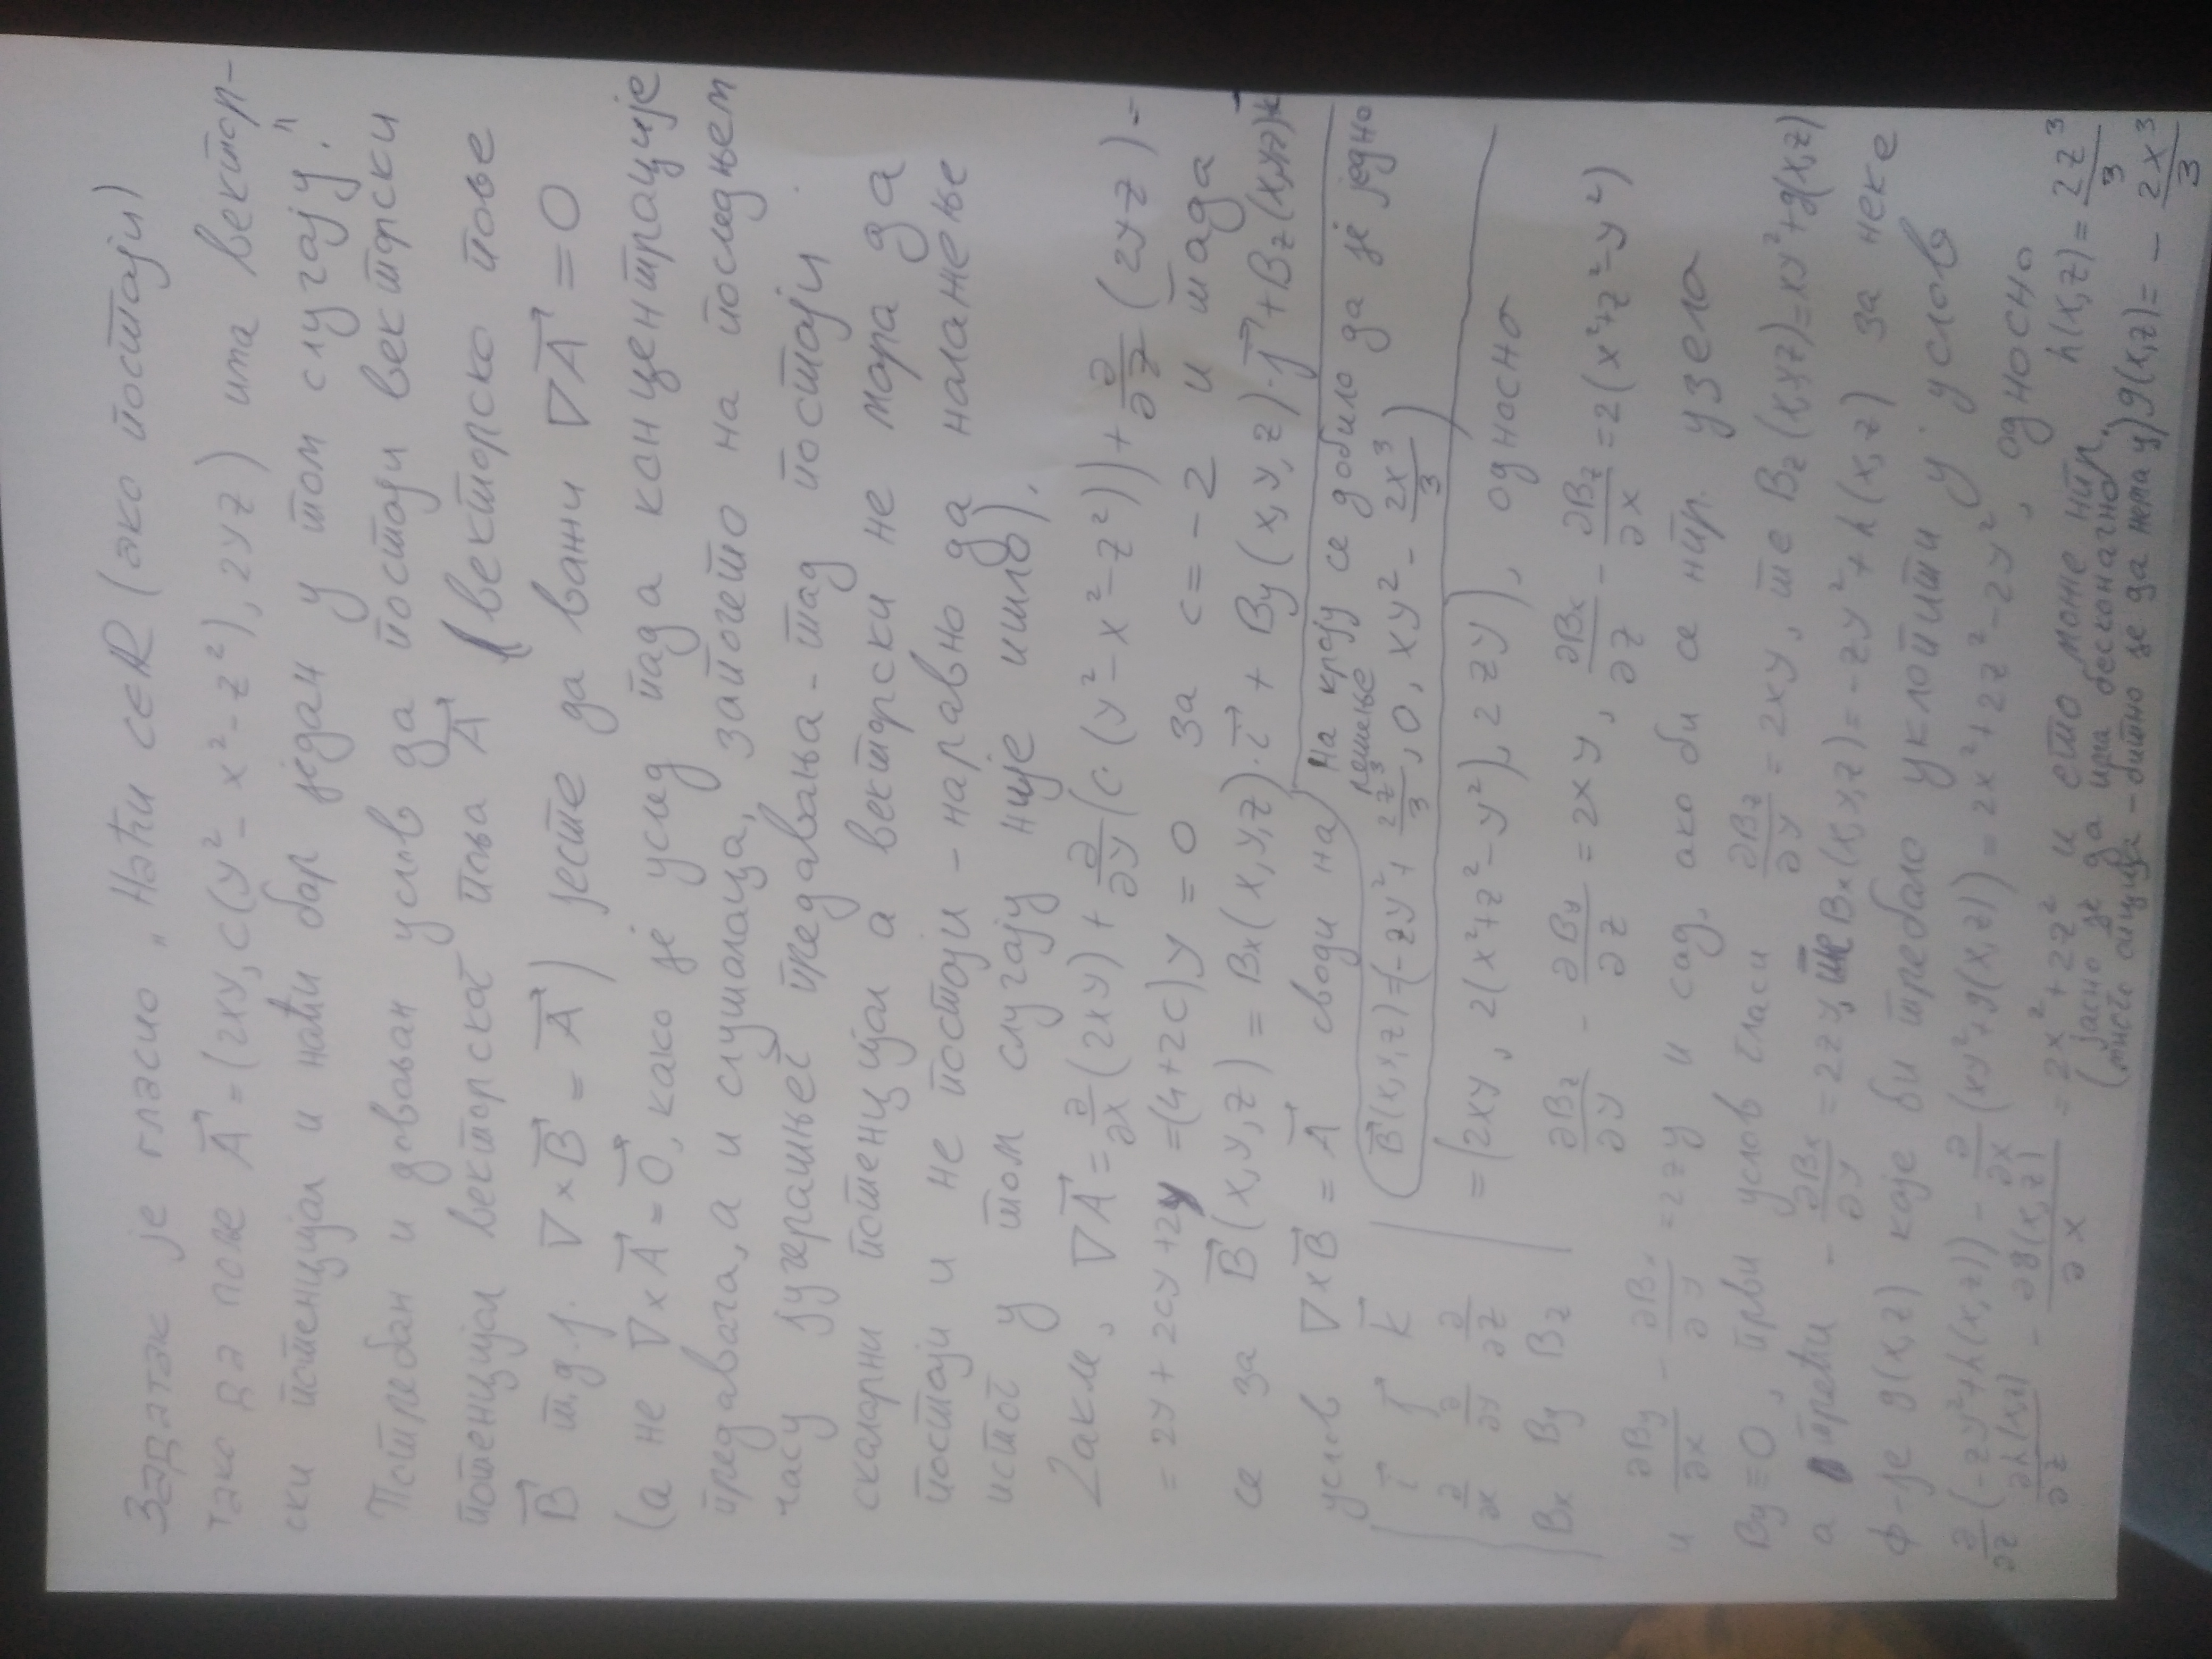 Задатак је гласио „Наћи c∈R (ако постоји)
тако да поље A⃗=(2xy, c(y²-x²-z²), 2yz) има вектор-
ски потенцијал и наћи бар један у том случају."
Потребан и довољан услов да постоји векторски
потенцијал векторског поља A⃗ (векторско поље
B⃗ т.д.ј. ∇×B⃗ = A⃗) јесте да важи ∇A⃗ = 0
(а не ∇×A⃗ = 0⃗, како је услед пада концентрације
предавача, а и слушалаца, започето на последњем
часу јучерашњег предавања - тад постоји
скаларни потенцијал а векторски не мора да
постоји и не постоји - наравно да налажење
истог у том случају није ишло).
Дакле, ∇A⃗ = ∂/∂x (2xy) + ∂/∂y (c·(y²-x²-z²)) + ∂/∂z (2yz) =
= 2y + 2cy + 2y = (4+2c)y = 0 за c = -2 и тада
се за B⃗(x,y,z) = Bx(x,y,z)·i⃗ + By(x,y,z)·j⃗ + Bz(x,y,z)k⃗
услов ∇×B⃗ = A⃗ своди на
На крају се добило да је једно
решење
B⃗(x,y,z) = (-zy² + 2z³/3, 0, xy² - 2x³/3)
| i⃗ j⃗ k⃗ |
| ∂/∂x ∂/∂y ∂/∂z | = (2xy, 2(x²+z²-y²), 2zy), односно
| Bx By Bz |
∂Bz/∂y - ∂By/∂z = 2xy, ∂Bx/∂z - ∂Bz/∂x = 2(x²+z²-y²)
и ∂By/∂x - ∂Bx/∂y = 2zy и сад, ако би се нпр. узело
By ≡ 0, први услов гласи ∂Bz/∂y = 2xy, те Bz(x,y,z) = xy² + g(x,z)
а трећи -∂Bx/∂y = 2zy, те Bx(x,y,z) = -zy² + h(x,z) за неке
ф-је g(x,z) које би требало уклопити у услов
∂/∂z (-zy² + h(x,z)) - ∂/∂x (xy² + g(x,z)) = 2x² + 2z² - 2y², односно
∂h(x,z)/∂z - ∂g(x,z)/∂x = 2x² + 2z² и ето може нпр. h(x,z) = 2z³/3
(јасно је да има бесконачно
много опција - битно је да нема y) g(x,z) = - 2x³/3